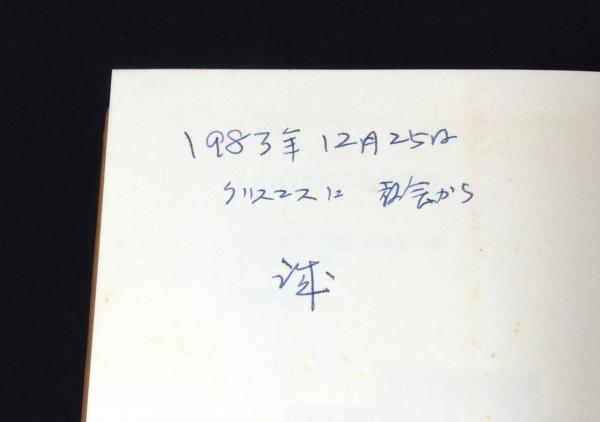 1983年 12月25日
クリスマスに 教会から
誠